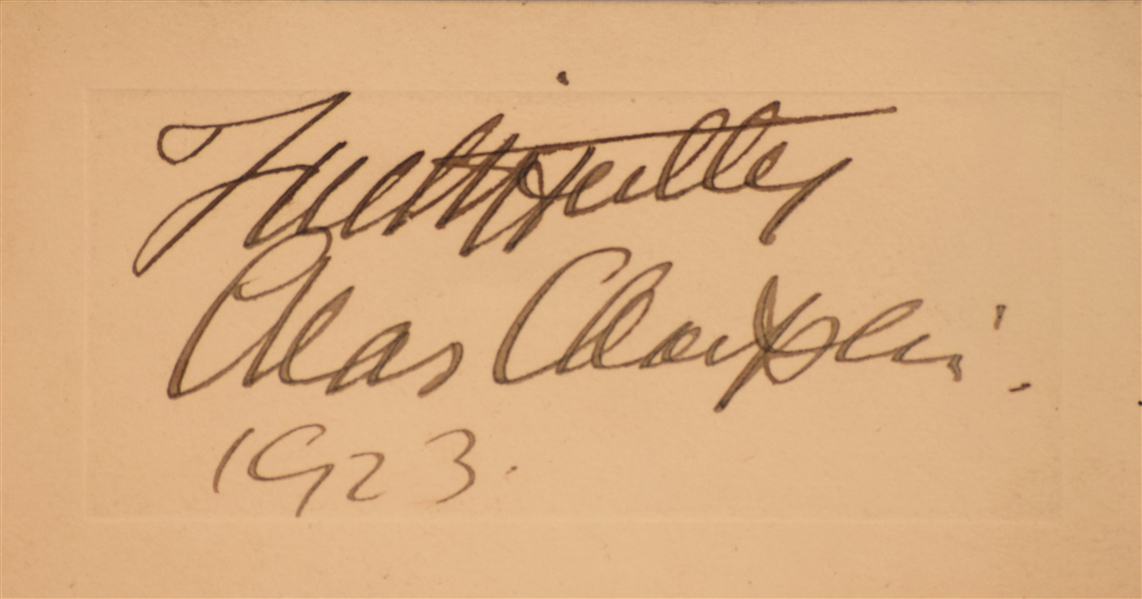 Faithfully
Chas Chaplin.
1923.